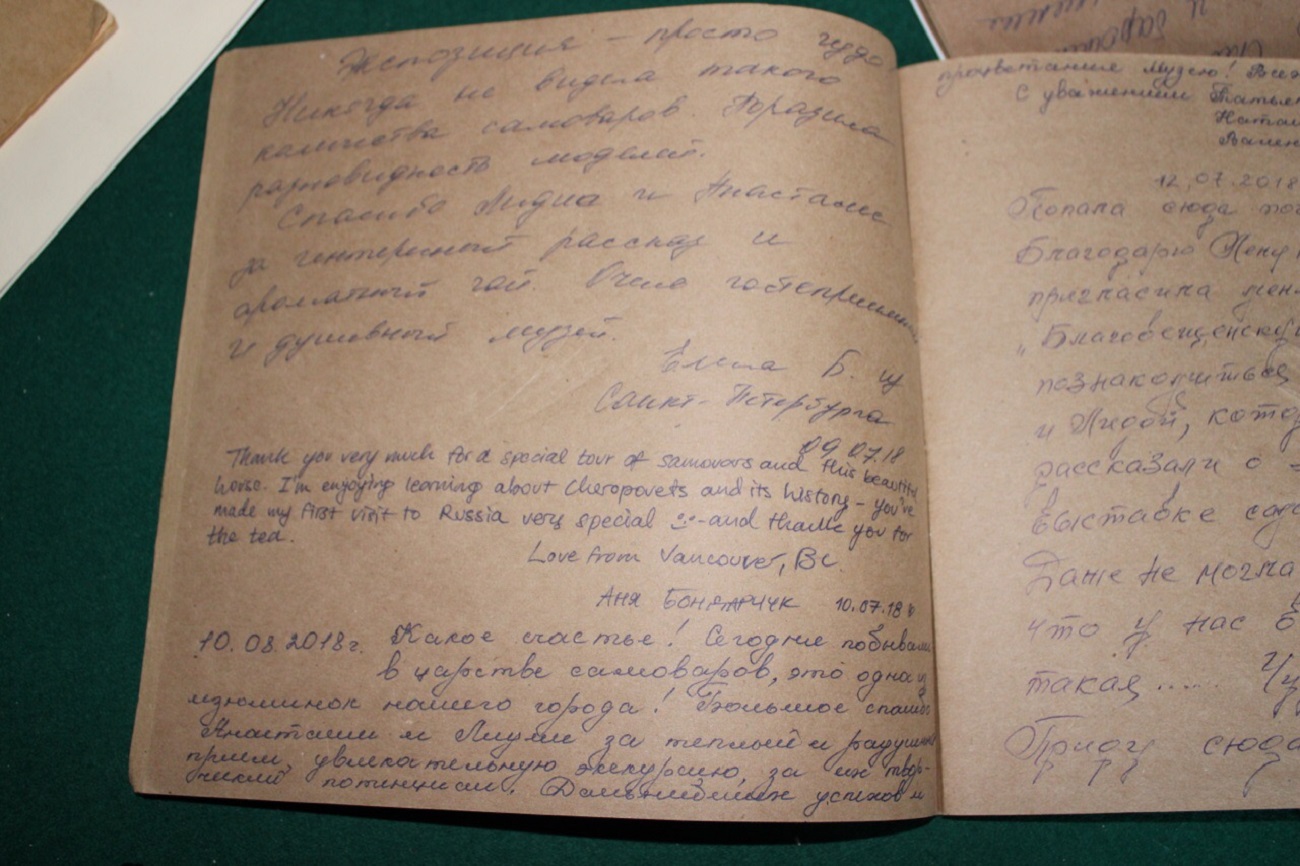 Экспозиция – просто чудо
Никогда не видела такого
количества самоваров. Поразила
разновидность моделей.
Спасибо Лидии и Анастасии
за интересный рассказ и
ароматный чай. Очень гостеприимный
и душевный музей.
Елена Б. из
Санкт-Петербурга
09.07.18
Thank you very much for a special tour of samovars and this beautiful
house. I'm enjoying learning about Cheropovets and its history – you've
made my first visit to Russia very special :) – and thank you for
the tea.
Love from Vancouver, BC.
Аня 10.07.18
10.08.2018г. Какое счастье! Сегодня побывали
в царстве самоваров, это одна из
изюминок нашего города! Большое спасибо
Анастасии и Лидии за теплый и радушный
прием, увлекательную экскурсию, за их твор-
ческий потенциал. Дальнейших успехов и
процветания музею! Всех
С уважением Татьян
Натал
Вален
12.07.2018
Попала сюда
Благодарю Лену
пригласила
"Благовещенскую
познакомиться
и Лидой, кото
рассказали о
выставке
Даже не могла
что у нас
такая.....
Приду сюда